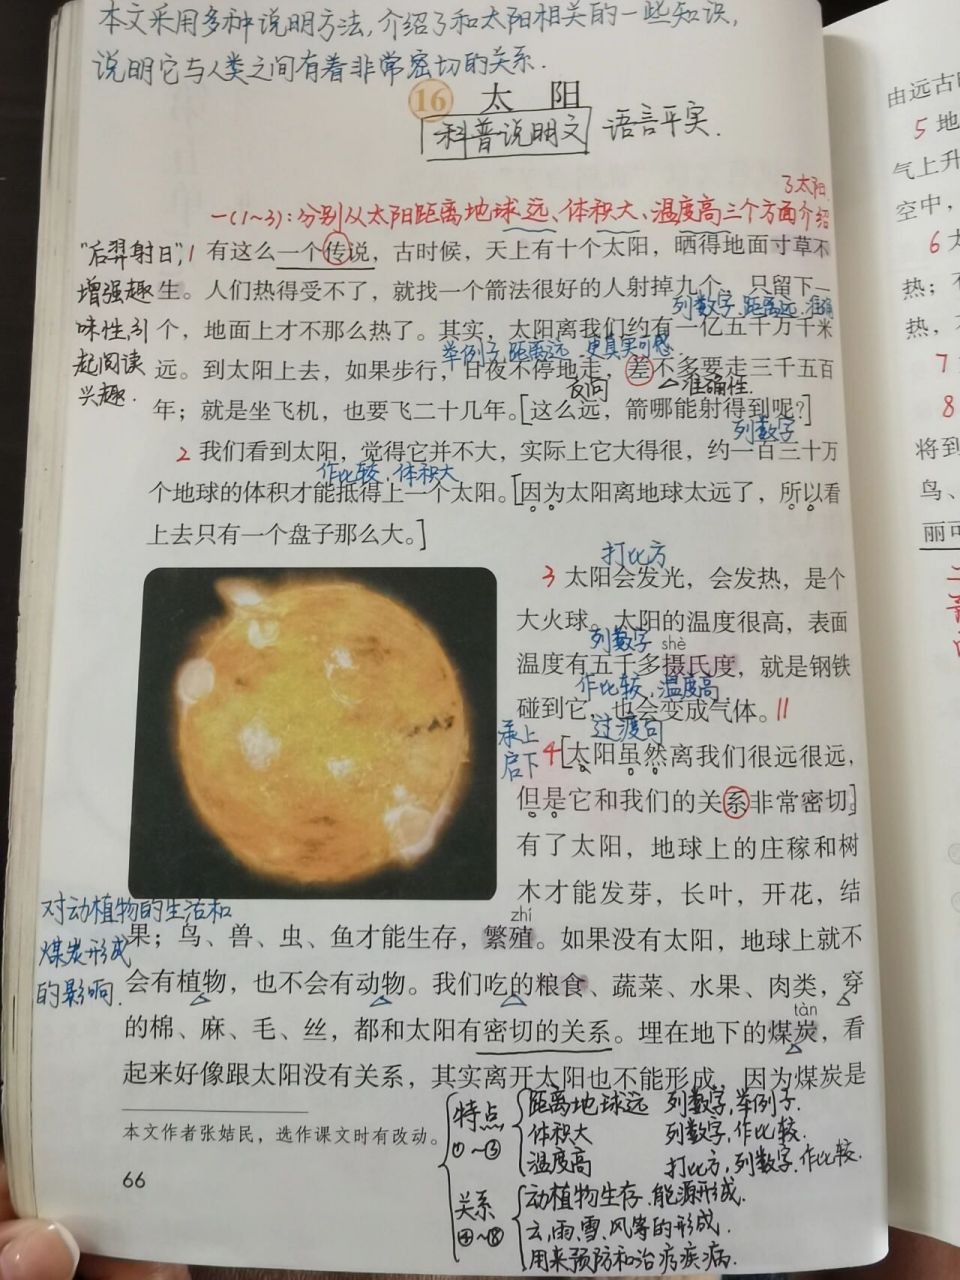 本文采用多种说明方法,介绍了和太阳相关的一些知识,
说明它与人类之间有着非常密切的关系.
16 太 阳
科普说明文 语言平实.
了太阳.
一(1~3):分别从太阳距离地球远、体积大、温度高三个方面介绍
"后羿射日",
增强趣
味性,引
起阅读
兴趣.
1 有这么一个传说，古时候，天上有十个太阳，晒得地面寸草不
生。人们热得受不了，就找一个箭法很好的人射掉九个，只留下一
列数字.距离远.准确
个，地面上才不那么热了。其实，太阳离我们约有一亿五千万千米
举例子,距离远 更真实可感
远。到太阳上去，如果步行，日夜不停地走，差不多要走三千五百
反问 准确性.
年；就是坐飞机，也要飞二十几年。[这么远，箭哪能射得到呢?]
列数字
2 我们看到太阳，觉得它并不大，实际上它大得很，约一百三十万
作比较.体积大
个地球的体积才能抵得上一个太阳。[因为太阳离地球太远了，所以看
上去只有一个盘子那么大。]
打比方
3 太阳会发光，会发热，是个
大火球。太阳的温度很高，表面
列数字 shè
温度有五千多摄氏度，就是钢铁
作比较,温度高
碰到它，也会变成气体。11
承上
启下
过渡句
4[太阳虽然离我们很远很远，
但是它和我们的关系非常密切。]
有了太阳，地球上的庄稼和树
木才能发芽，长叶，开花，结
对动植物的生活和
煤炭形成
的影响.
zhí
果；鸟、兽、虫、鱼才能生存，繁殖。如果没有太阳，地球上就不
会有植物，也不会有动物。我们吃的粮食、蔬菜、水果、肉类，穿
tàn
的棉、麻、毛、丝，都和太阳有密切的关系。埋在地下的煤炭，看
起来好像跟太阳没有关系，其实离开太阳也不能形成，因为煤炭是
本文作者张姞民，选作课文时有改动。
66
特点
①~③
距离地球远 列数字,举例子.
体积大 列数字,作比较.
温度高 打比方,列数字.作比较.
关系
④~⑧
动植物生存.能源形成.
云,雨、雪、风等的形成.
用来预防和治疗疾病.
由远古
5 地
气上升
空中，
6 太
热；
热，
7
8
将到
鸟、
丽可